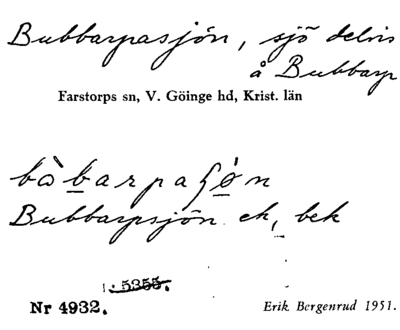 Bubbarpasjön, sjö delvis
å Bubbarp
Farstorps sn, V. Göinge hd, Krist. län
bàb̲arpaʃǿ̲n
Bubbarpsjön ek, bek
5355.
Nr 4932.
Erik Bergenrud 1951.